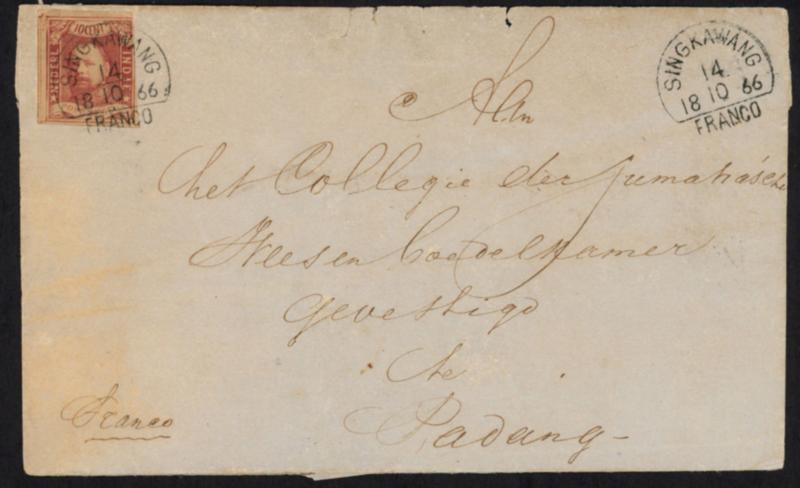 10 CENT
SINGKAWANG
14
18 10 66
FRANCO
SINGKAWANG
14
18 10 66
FRANCO
Aan
het Collegie der Sumatrasche
Weesen boedelkamer
gevestigd
te
Padang
Franco